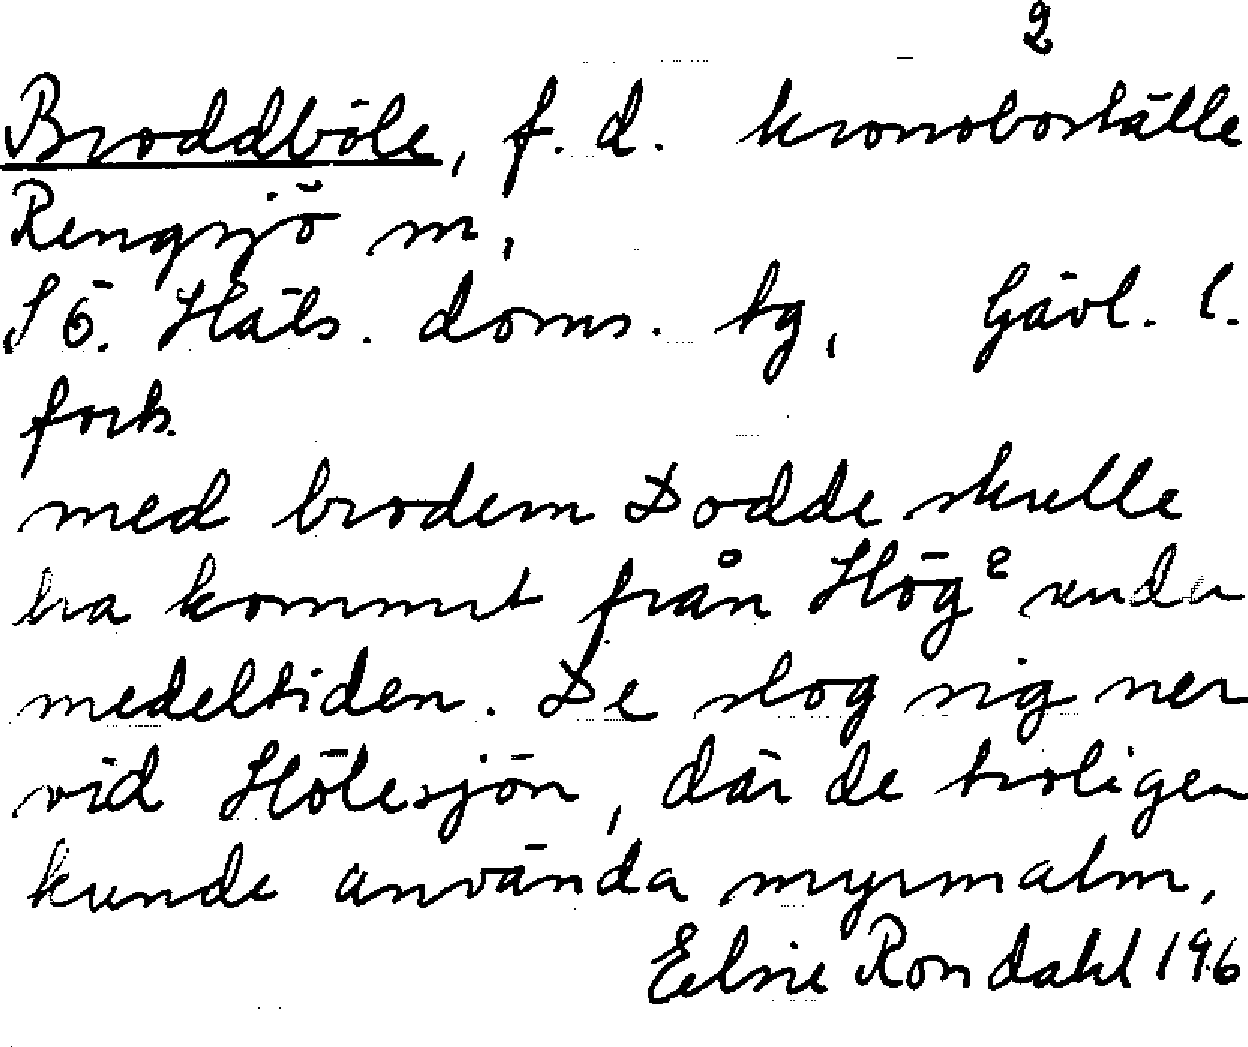 2
Broddböle, f. d. kronoboställe
Rengsjö sn,
S Ö. Häls. doms. tg, Gävl. l.
forts.
med brodern Dodde skulle
ha kommit från Hög? under
medeltiden. De slog sig ner
vid Hölesjön, där de troligen
kunde använda myrmalm.
Elsie Rondahl 196